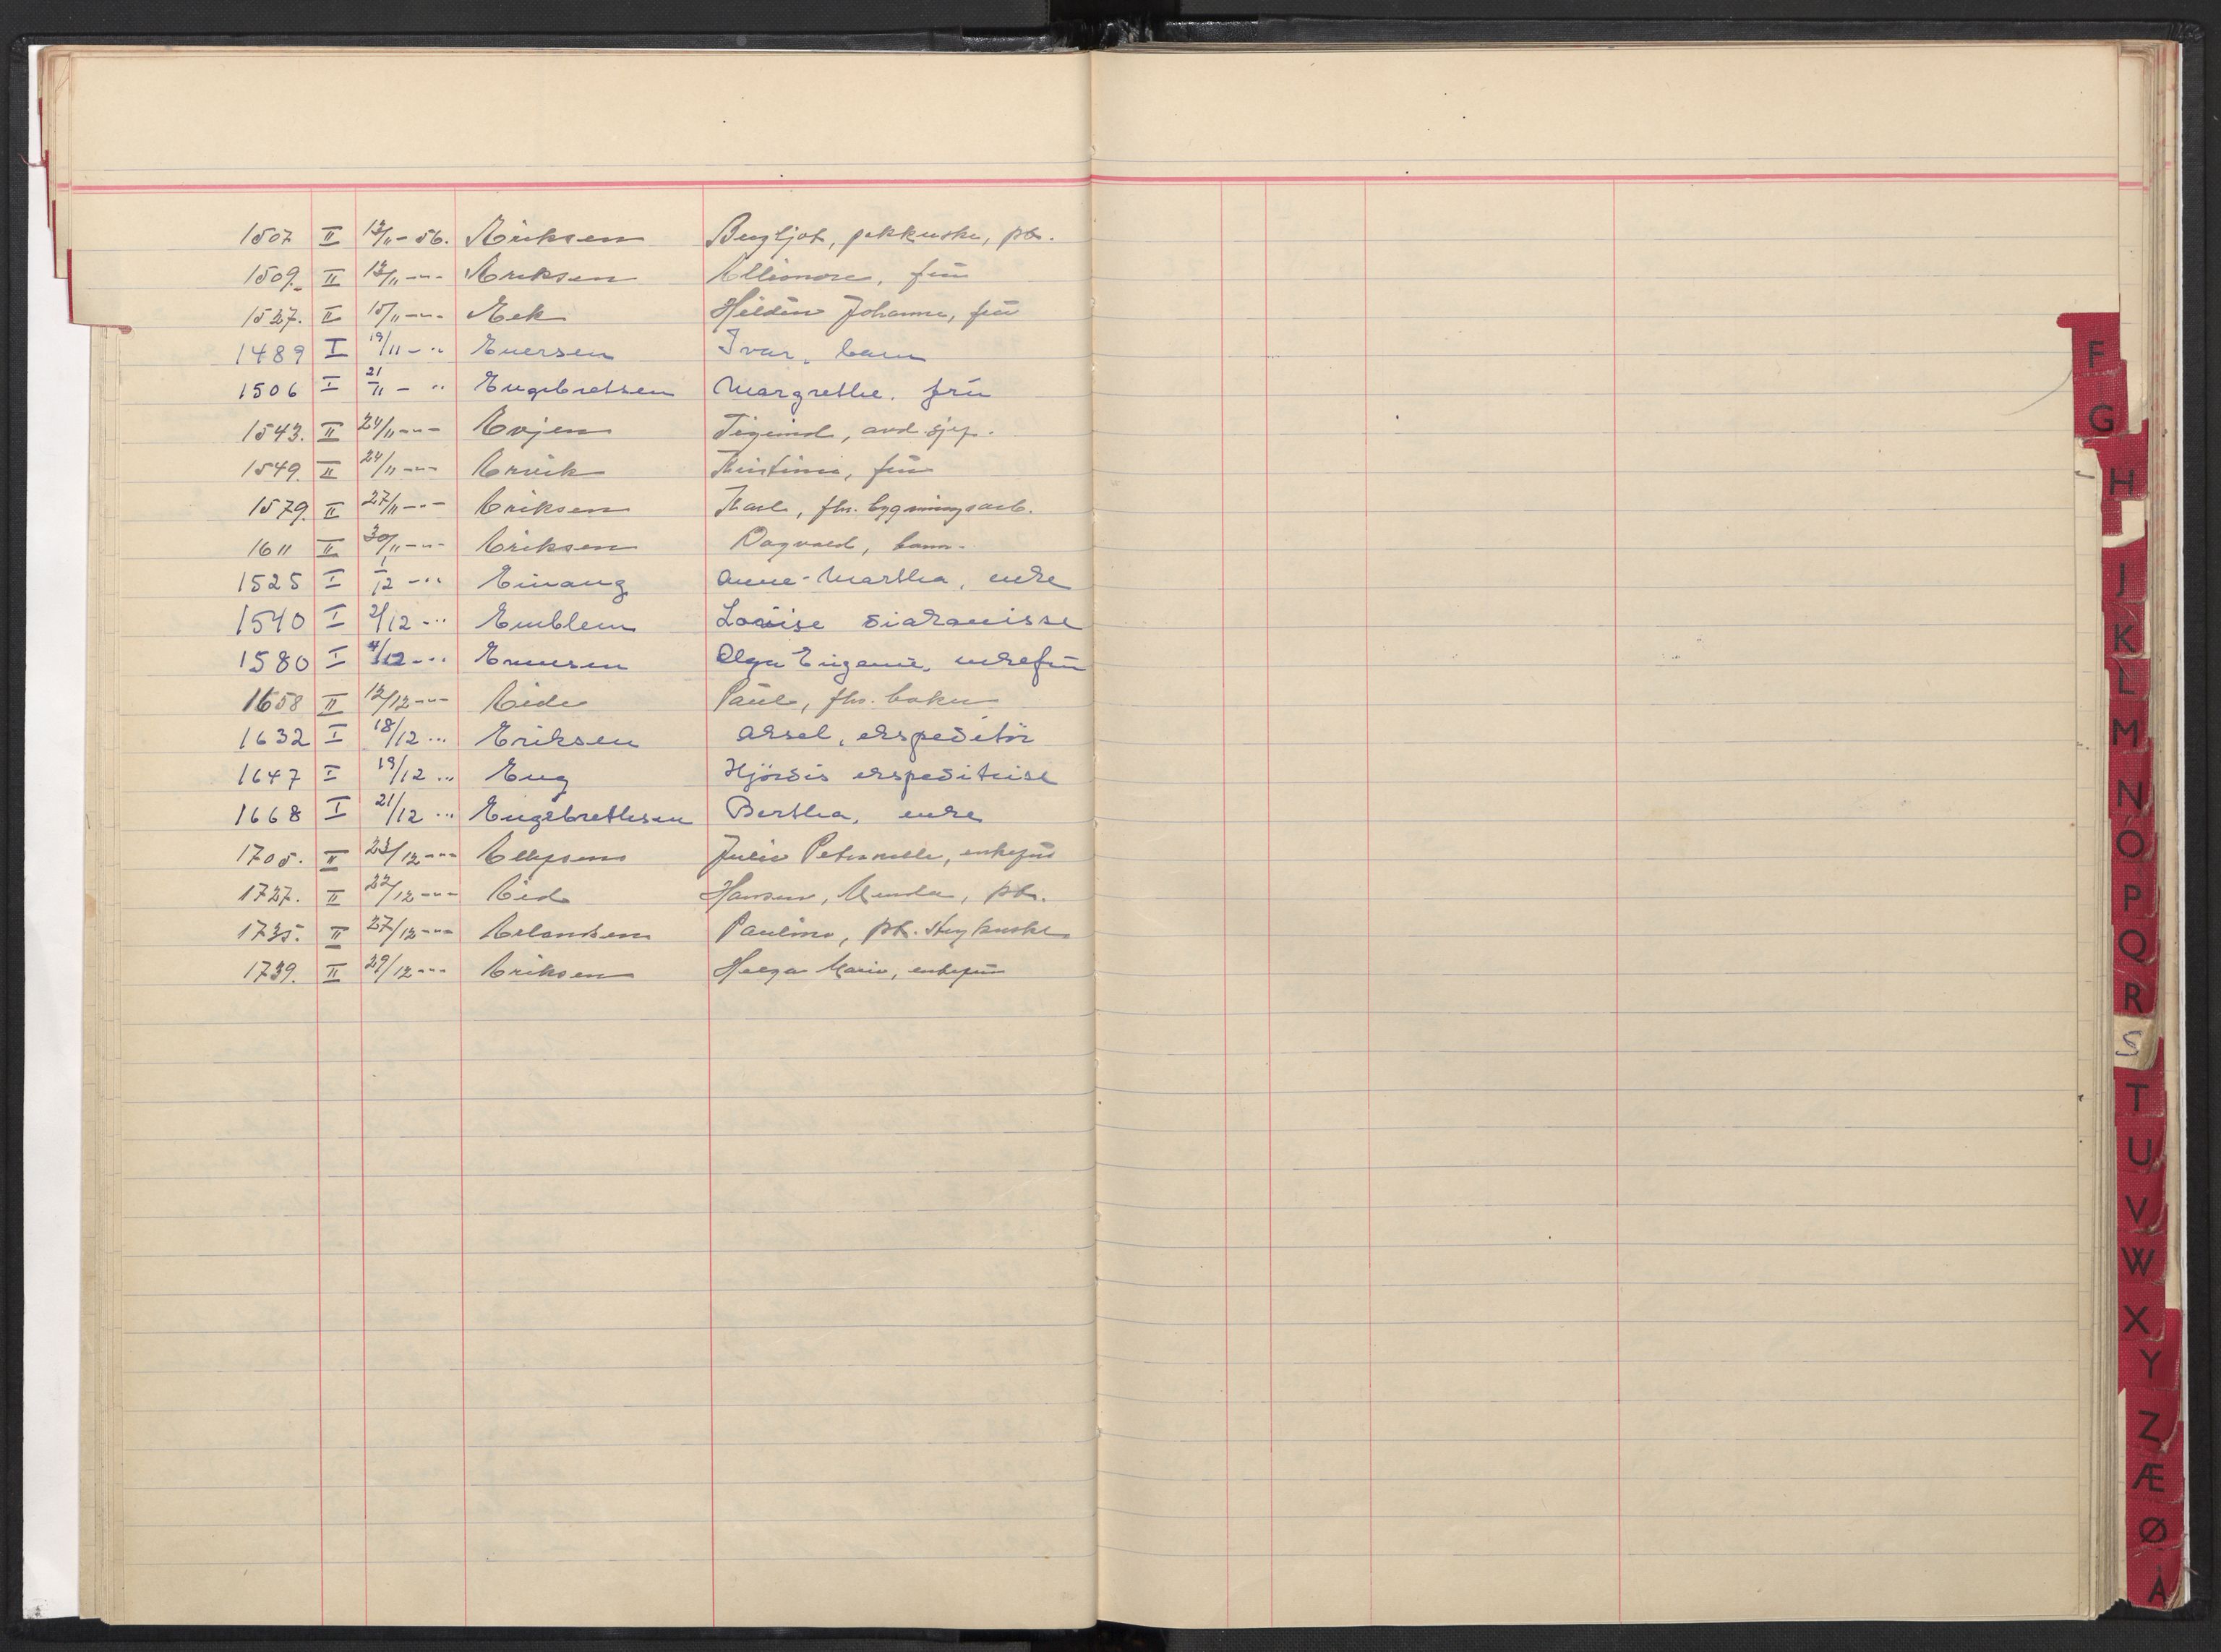 1507 II 12/11-56. Eriksen Bergljot, pakkerske, pb.
1509. II 12/11 -"- Eriksen Ellionore, frü
1527. II 15/11 -"- Eek Johanne, frü
1489 I 19/11 - " Eversen Ivar, barn
1506 I 21/11 - " Engebretsen Margrethe. frü
1543. II 24/11 -"- Evjen avd. sjef.
1549. II 24/11 -"- Ervik Kristine, frü
1579. II 27/11 -"- Eriksen Karl, fhv. bygningsarb.
1611 II 30/11 -"- Eriksen Dagvald, barn.
1525 I 1/12 - " Einang Anne-Martha, enke
1540 I 2/12 - " Emblem Louise diakonisse
1580 I 4/12 - " Olga Eugenie, enkefrü
1658 II 12/12 -"- Eide Paul, fhv. baker
1632 I 18/12 " Eriksen Aksel, ekspeditör
1647 I 19/12 " Eng Hjördis ekspeditrise
1668 I 21/12 " Engebrethsen Bertha, enke
1705. II 23/12 -"- Ellefsen Julie Petronelle, enkefrü
1727. II 22/12 -"- Eid Hansen, pb.
1735. II 27/12 -"- Erlandsen Pauline, pb. strykerske
1739. II 29/12 -"- Eriksen Helga Marie, enkefrü
F
G
H
J
K
L
M
N
O
P
Q
R
S
T
U
V
W
X
Y
Z
Æ
Ø
Å